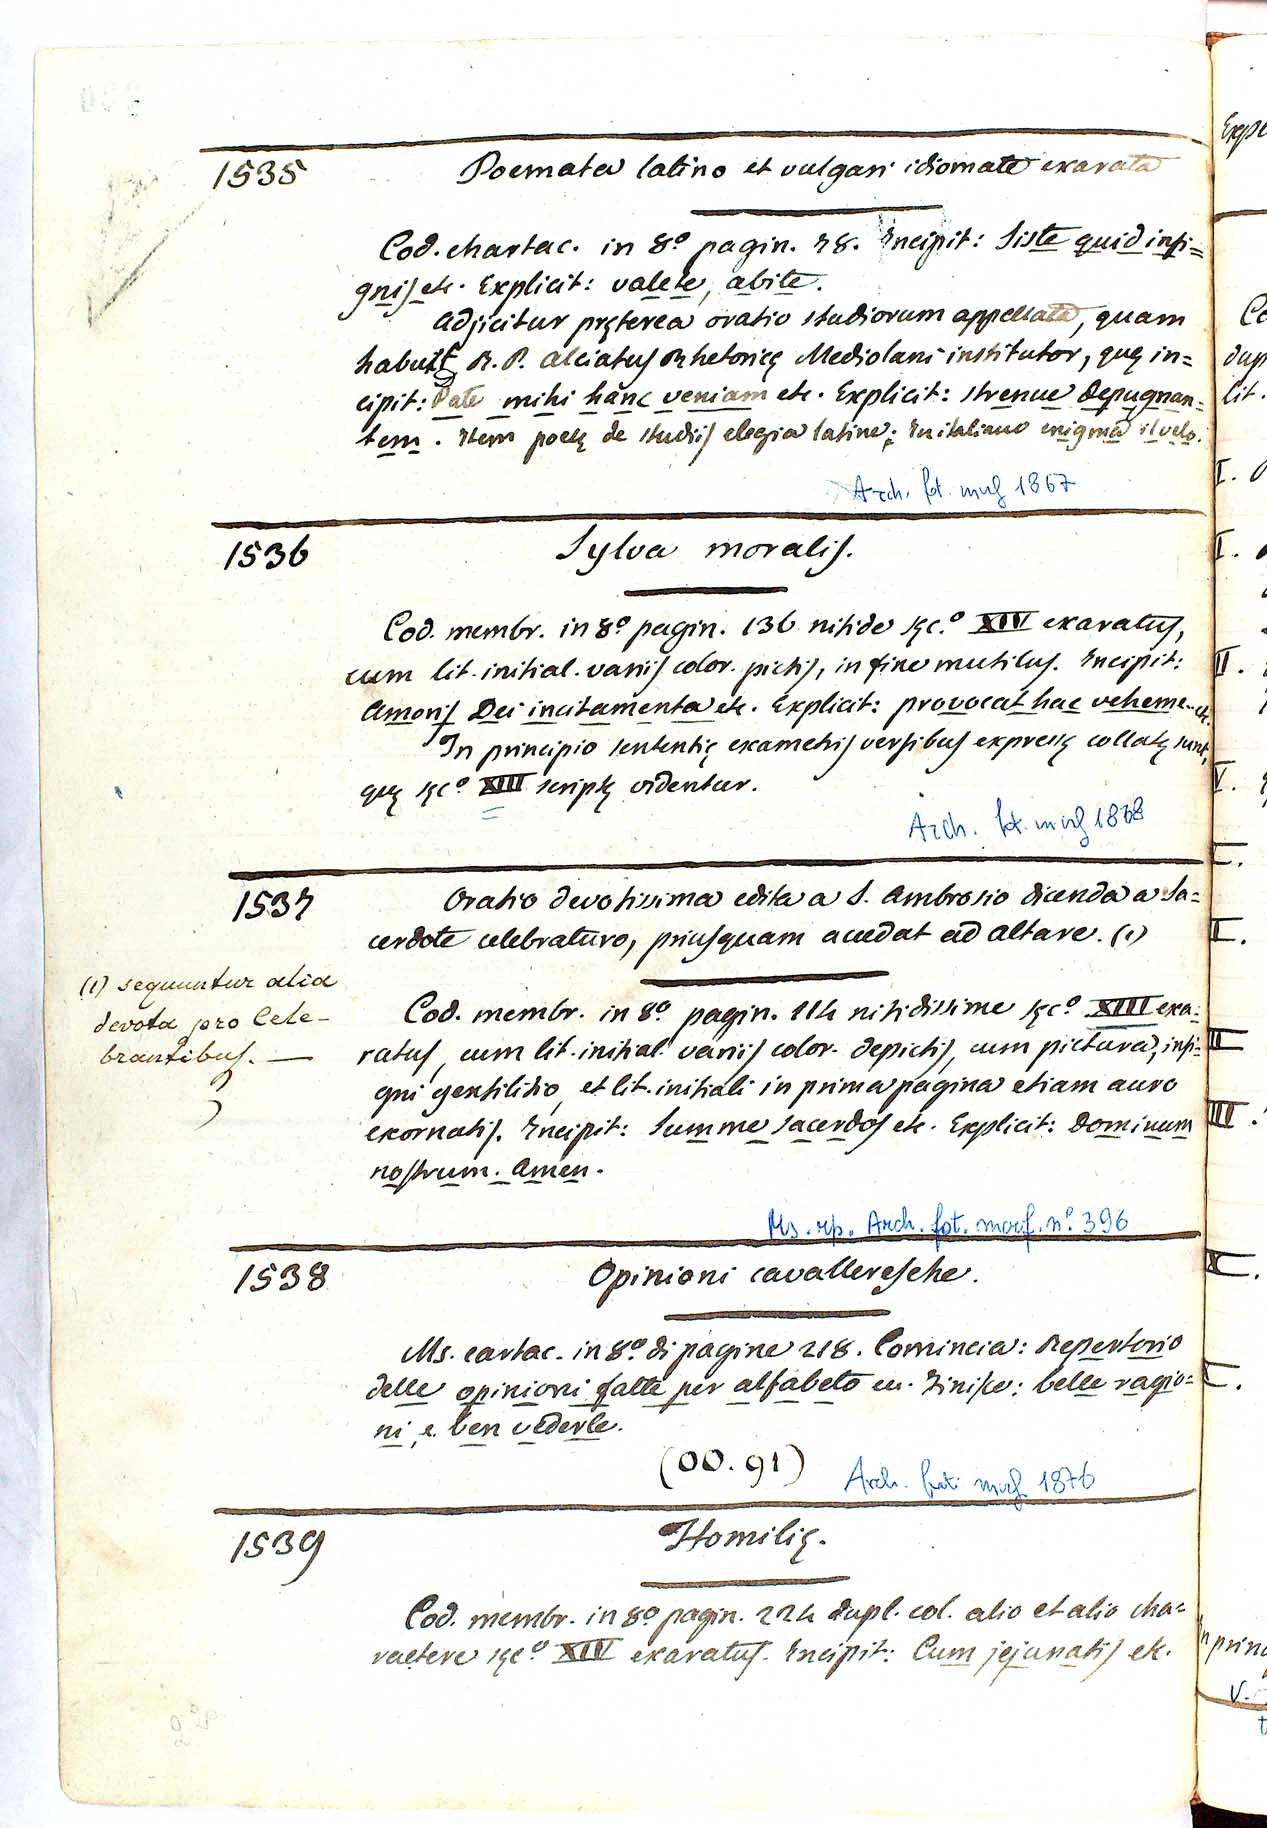 1535 Poemata latino et vulgari idiomate exarata
Cod. chartac. in 8º pagin. 78. Incipit: Siste quid insi=
gnis etc. Explicit: valete, abite.
Adjicitur pręterea oratio studiorum appellata, quam
habuit R. P. Alciatus Rhetoricę Mediolani institutor, quę in=
cipit: Date mihi hanc veniam etc. Explicit: strenue depugnan=
tem. Item poetę de studiis elegia latine; In italiano enigma il velo.
Arch. fot. mrf 1867
1536 Sylva moralis.
Cod. membr. in 8º pagin. 136 nitide sęc.º XIV exaratus,
cum lit. initial. variis color. pictis, in fine mutilus. Incipit:
Amoris Dei incitamenta etc. Explicit: provocat hac veheme.. etc.
In principio sententię exametris versibus expressę collatę sunt,
quę sęcº XIII scriptę videntur.
Arch. fot. mrf 1868
1537 Oratio devotissima edita a S. Ambrosio dicenda a Sa=
cerdote celebraturo, priusquam accedat ad altare. (1)
(1) sequuntur alia
devota pro Cele-
brantibus. —
Cod. membr. in 8º pagin. 114 nitidissime sęcº XIII exa=
ratus, cum lit. initial. variis color. depictis, cum pictura, insi=
gni gentilitio, et lit. initiali in prima pagina etiam auro
exornatis. Incipit: Summe sacerdos etc. Explicit: Dominum
nostrum. Amen.
Ms. rip. Arch. fot. morf. nº 396
1538 Opinioni cavalleresche.
Ms. cartac. in 8º di pagine 218. Comincia: Repertorio
delle opinioni fatte per alfabeto ec. Finisce: belle ragio=
ni, e ben vederle.
(OO. 91)
Arch. fot. mrf 1876
1539 Homilię.
Cod. membr. in 8º pagin. 224 dupl. col. alio et alio cha=
ractere sęcº XIV exaratus. Incipit: Cum jejunatis etc.